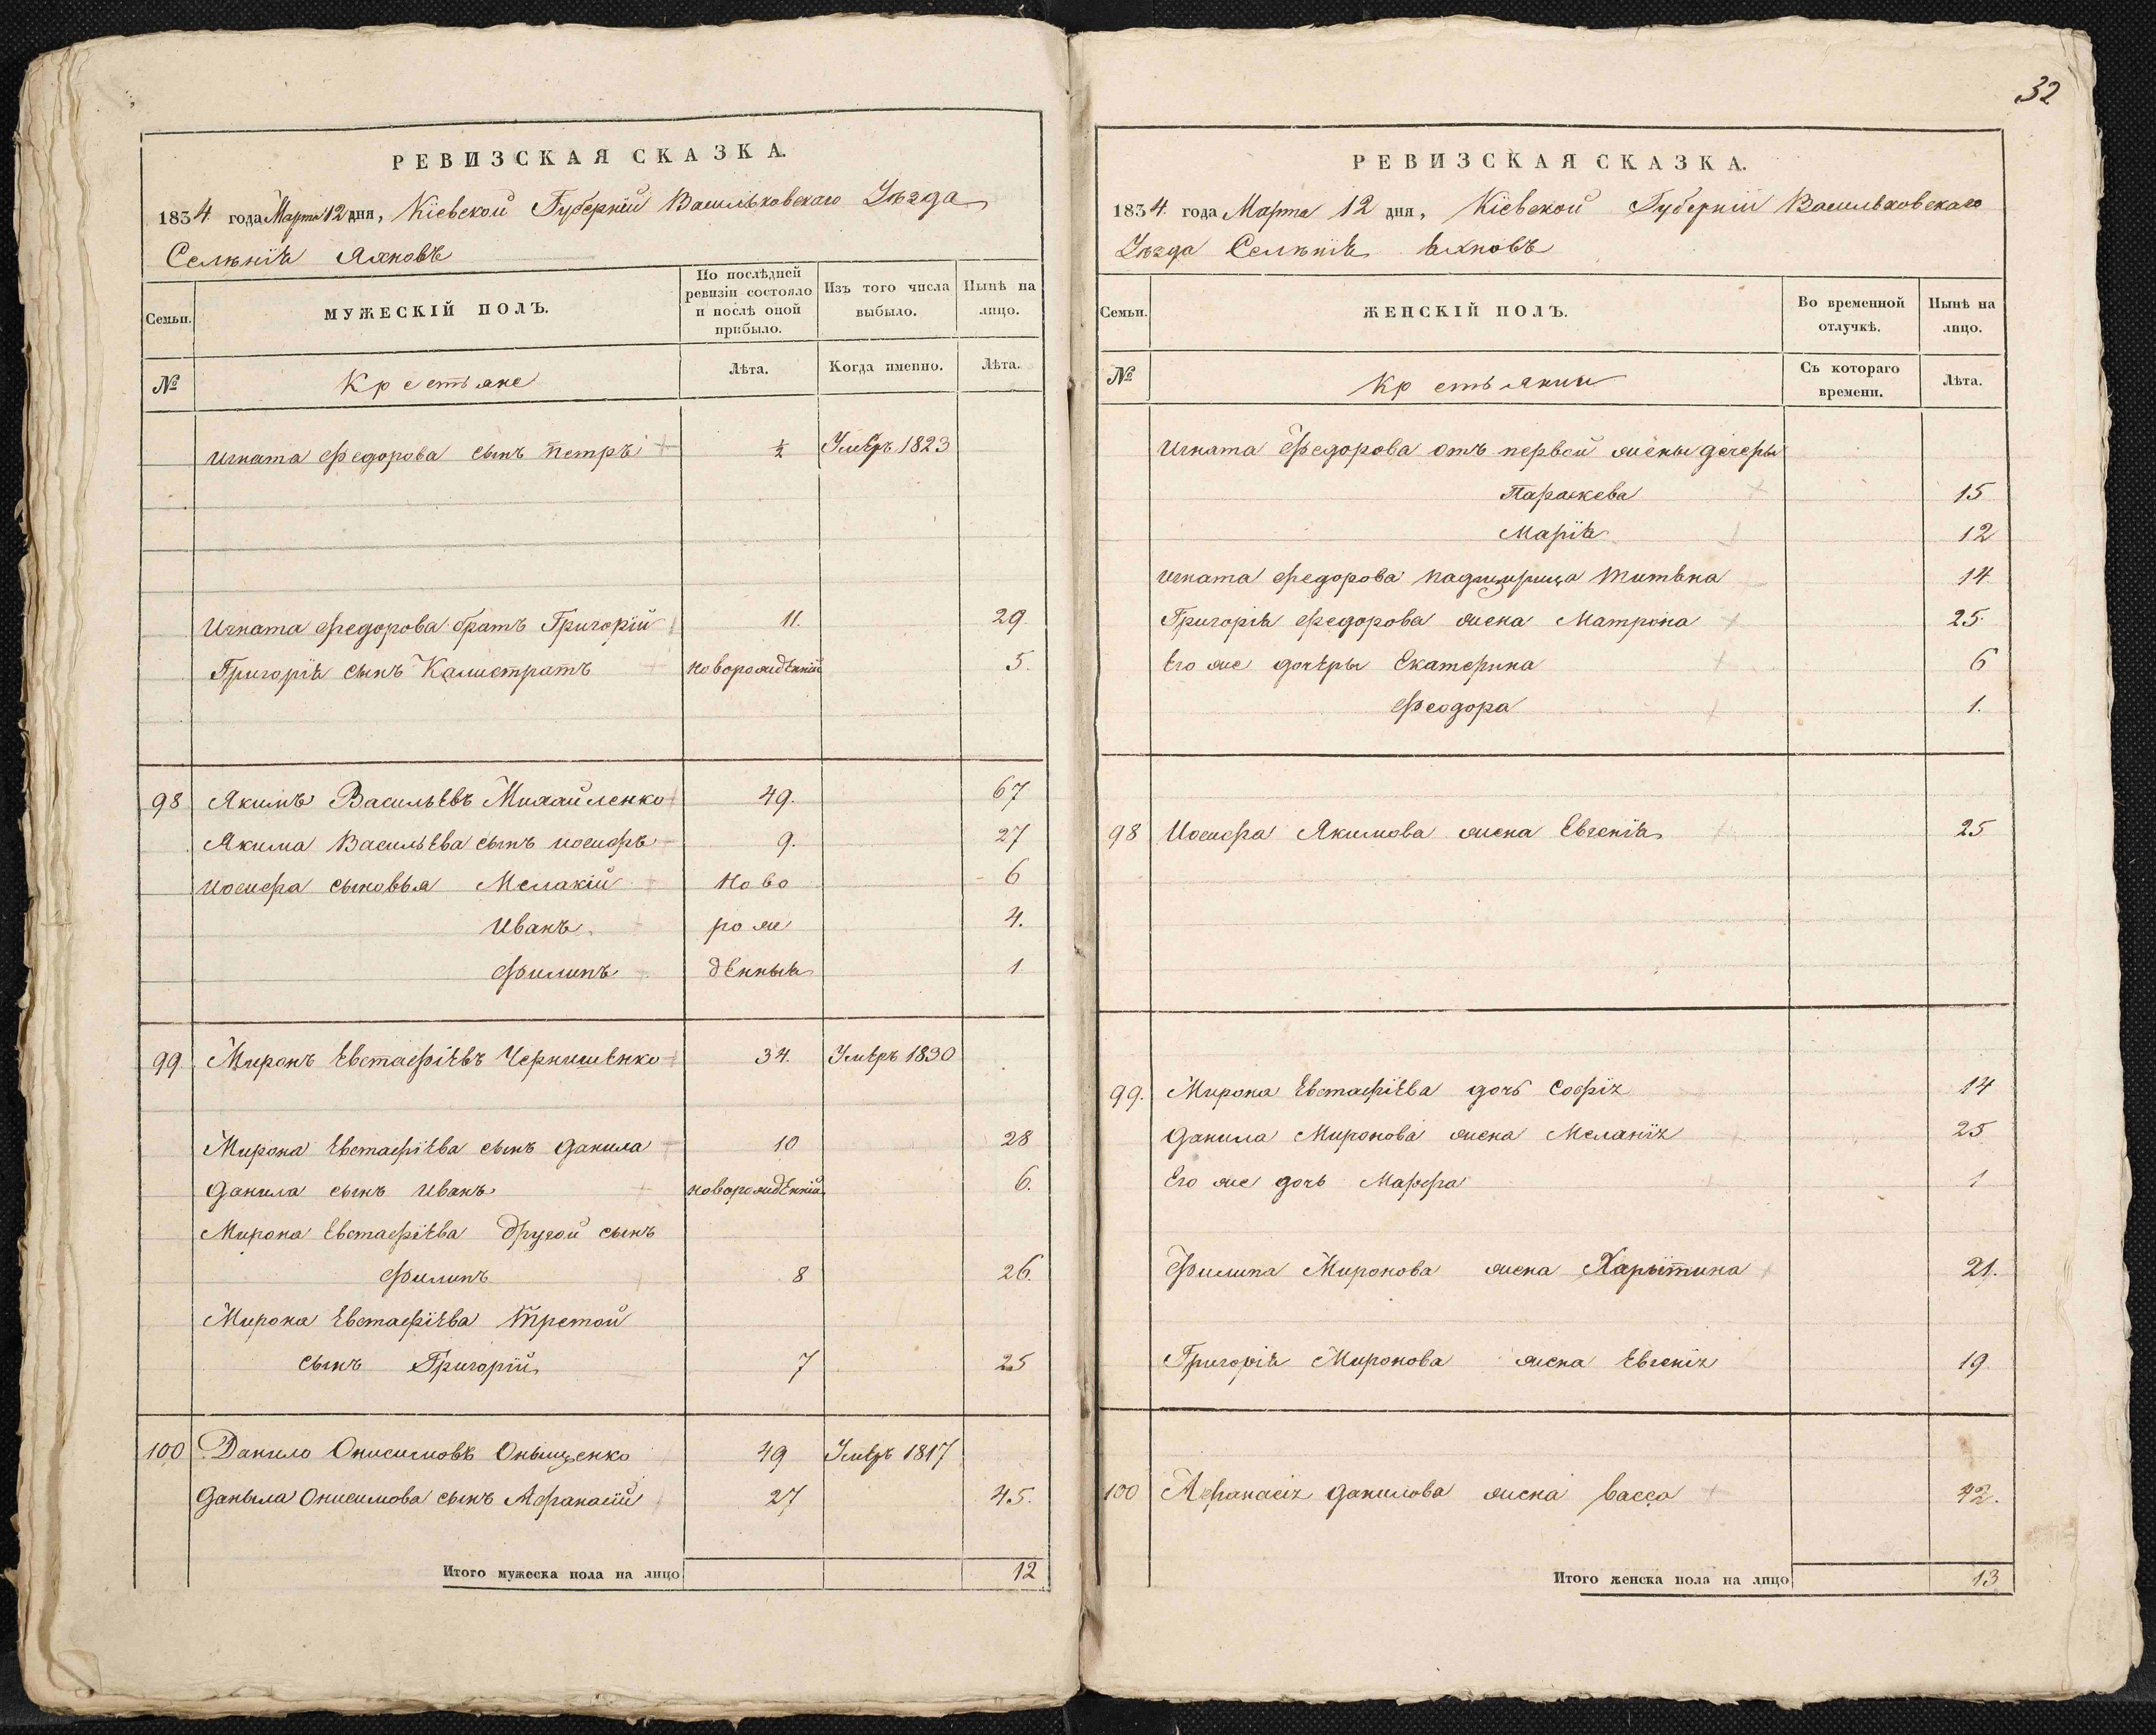 РЕВИЗСКАЯ СКАЗКА.
1834 года Марта 12 дня, Кіевской Губерніи Васильковскаго Уѣзда
Селѣнія Яхновъ
Семьи.
МУЖЕСКІЙ ПОЛЪ.
По послѣдней ревизіи состояло и послѣ оной прибыло.
Изъ того числа выбыло.
Нынѣ на лицо.
№
Крестьяне
Лѣта.
Когда именно.
Лѣта.
Игната Федорова сынъ Петръ ½ Умеръ 1823
Игната Федорова братъ Григорій 11. 29.
Григорія сынъ Калистратъ новорожденній 5.
98 Якимъ Васильевъ Михайленко 49. 67
Якима Васильева сынъ Иосифъ 9. 27
Иосифа сыновья Мелакій Ново 6
Иванъ рож 4.
Филипъ денныя 1
99 Миронъ Евстафіевъ Чернишенко 34. Умеръ 1830
Мирона Евстафіева сынъ Данила 10 28
Данила сынъ Иванъ новорожденній 6.
Мирона Евстафіева другой сынъ
Филипъ 8 26.
Мирона Евстафіева третой
сынъ Григорій 7 25
100 Данило Онисимовъ Оныщенко 49 Умеръ 1817
Даныла Онисимова сынъ Афанасій 27 45.
Итого мужеска пола на лицо 12
32
РЕВИЗСКАЯ СКАЗКА.
1834. года Марта 12 дня, Кіевской Губерніи Васильковскаго
Уѣзда Селѣнія Яхновъ
Семьи.
ЖЕНСКІЙ ПОЛЪ.
Во временной отлучкѣ.
Нынѣ на лицо.
№
Крестьянки
Съ котораго времени.
Лѣта.
Игната Федорова отъ первой жены дечеры
Параскева 15
Марія 12
Игната Федорова падчерица Титяна 14
Григорія Федорова жена Матрона 25.
Его же дочеры Екатерина 6
Феодора 1.
98 Иосифа Якимова жена Евгенія 25
99. Мирона Евстафіева дочь Софія 14
Данила Миронова жена Меланія 25
Его же дочь Марфа 1
Филипа Миронова жена Харытина 21.
Григорія Миронова жена Евгенія 19.
100 Афанасія Данилова жена Васса 42.
Итого женска пола на лицо 13